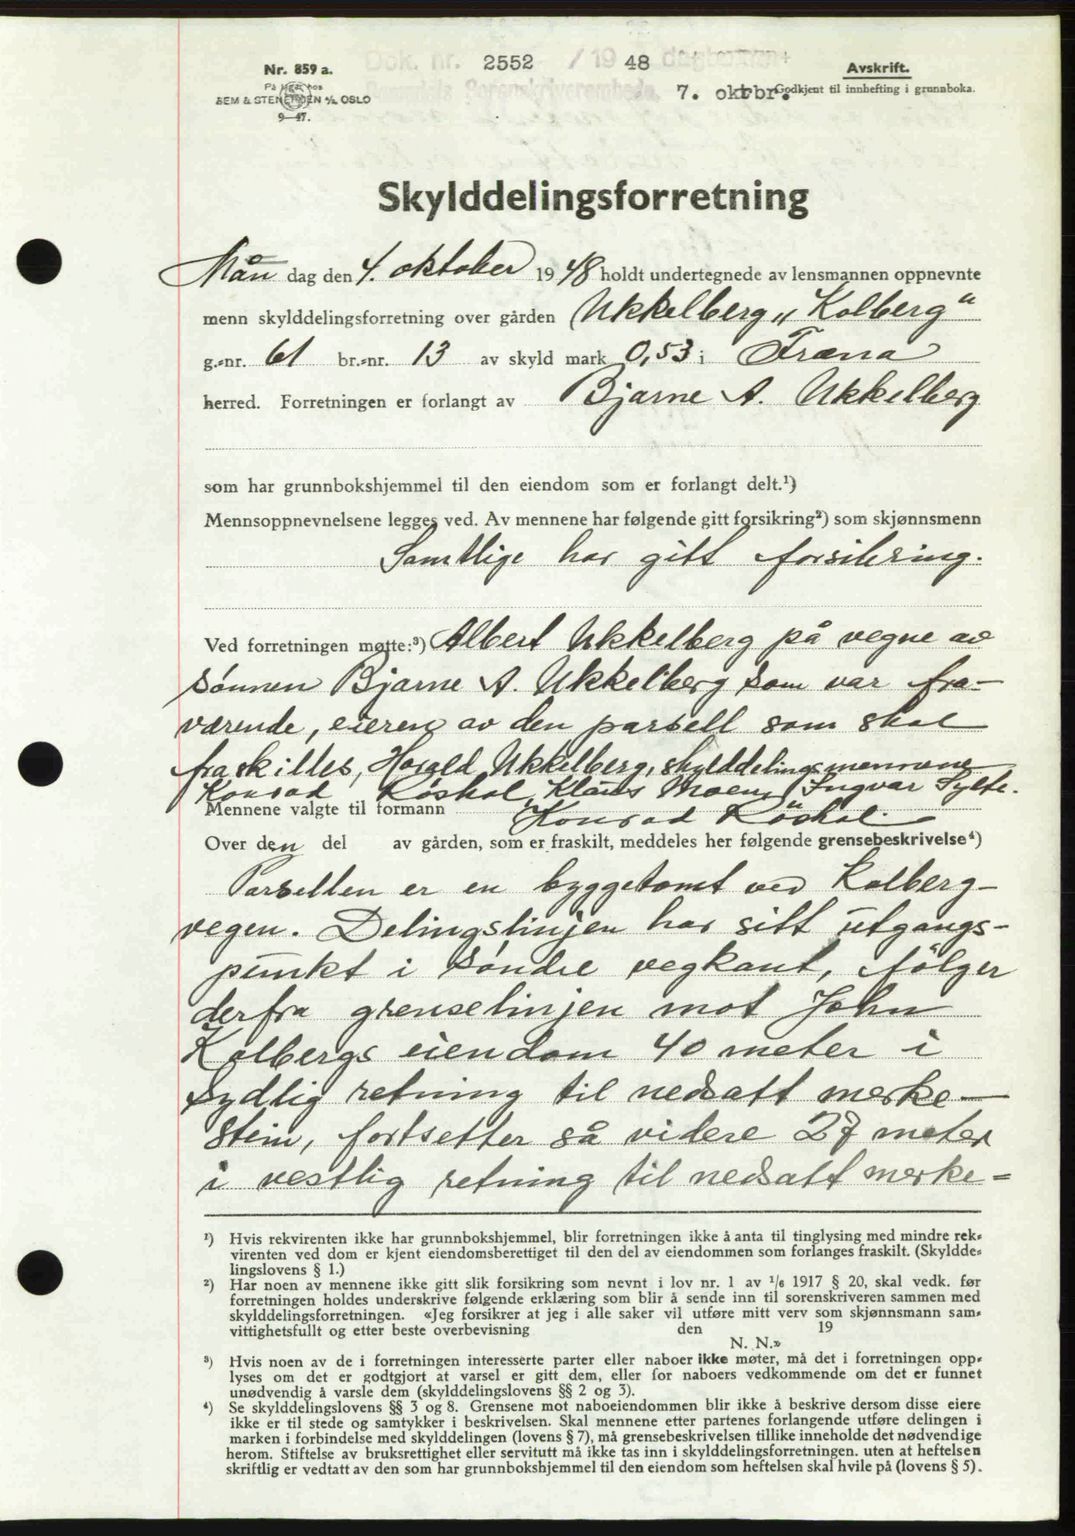 Dok. nr. 2552 / 1948 dagboken
Romsdals Sorenskriverembede. 7. oktbr.
Nr. 859 a.
På lager hos
SEM & STENERSEN A/S OSLO
9—47.
Avskrift.
Godkjent til innhefting i grunnboka.
Skylddelingsforretning
Mån dag den 4. oktober 1948 holdt undertegnede av lensmannen oppnevnte
menn skylddelingsforretning over gården Ukkelberg „Kolberg"
g.-nr. 61 br.-nr. 13 av skyld mark 0,53 i Fræna
herred. Forretningen er forlangt av Bjarne A. Ukkelberg
som har grunnbokshjemmel til den eiendom som er forlangt delt.¹)
Mennsoppnevnelsene legges ved. Av mennene har følgende gitt forsikring²) som skjønnsmenn
Samtlige har gitt forsikring.
Ved forretningen møtte:³) Albert Ukkelberg på vegne av
sønnen Bjarne A. Ukkelberg som var fra-
værende, eieren av den parsell som skal
fraskilles, Harald Ukkelberg, skylddelingsmennene
Konrad Röshol, Klaus Moen, Ingvar Sylte.
Mennene valgte til formann Konrad Röshol.
Over den del av gården, som er fraskilt, meddeles her følgende grensebeskrivelse⁴)
Parsellen er en byggetomt ved Kolberg-
vegen. Delingslinjen har sitt utgangs-
punkt i søndre vegkant, följer
derfra grenselinjen mot John
Kolbergs eiendom 40 meter i
sydlig retning til nedsatt merke-
stein, fortsetter så videre 27 meter
i vestlig retning til nedsatt merke-
¹) Hvis rekvirenten ikke har grunnbokshjemmel, blir forretningen ikke å anta til tinglysing med mindre rek-
virenten ved dom er kjent eiendomsberettiget til den del av eiendommen som forlanges fraskilt. (Skyldde-
lingslovens § 1.)
²) Har noen av mennene ikke gitt slik forsikring som nevnt i lov nr. 1 av 1/6 1917 § 20, skal vedk. før
forretningen holdes underskrive følgende erklæring som blir å sende inn til sorenskriveren sammen med
skylddelingsforretningen. «Jeg forsikrer at jeg i alle saker vil utføre mitt verv som skjønnsmann sam-
vittighetsfullt og etter beste overbevisning den 19
N. N.»
³) Hvis noen av de i forretningen interesserte parter eller naboer ikke møter, må det i forretningen opp-
lyses om det er godtgjort at varsel er gitt dem, eller for naboers vedkommende om det er funnet
unødvendig å varsle dem (skylddelingslovens §§ 2 og 3).
⁴) Se skylddelingslovens §§ 3 og 8. Grensene mot naboeiendommen blir ikke å beskrive dersom disse eiere
ikke er til stede og samtykker i beskrivelsen. Skal mennene etter partenes forlangende utføre delingen i
marken i forbindelse med skylddelingen (lovens § 7), må grensebeskrivelsen tillike inneholde det nødvendige
herom. Stiftelse av bruksrettighet eller servitutt må ikke tas inn i skylddelingsforretningen. uten at heftelsen
skriftlig er vedtatt av den som har grunnbokshjemmel til den eiendom som heftelsen skal hvile på (lovens § 5).